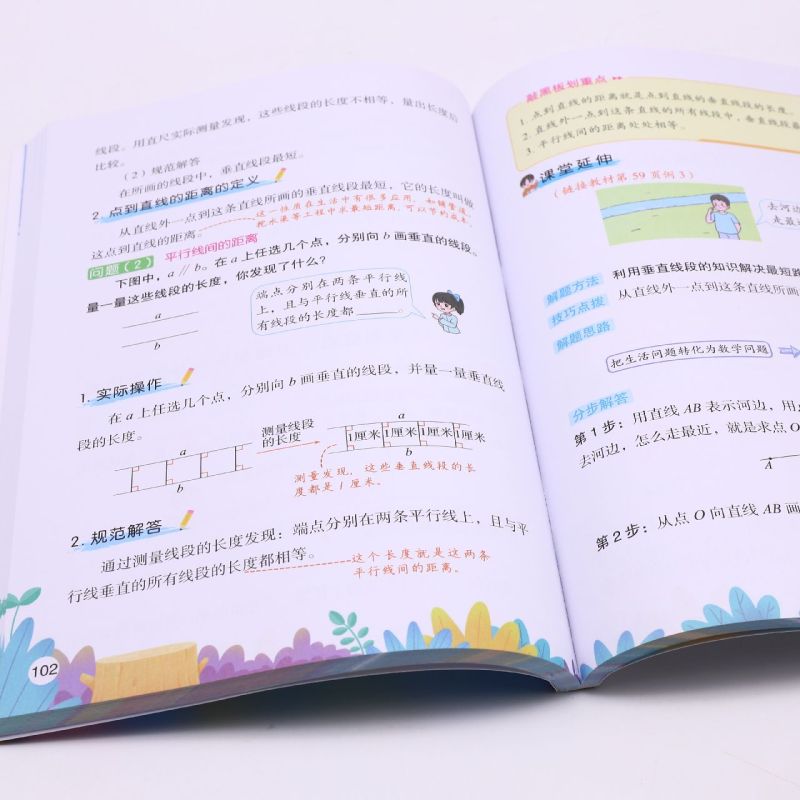 线段。用直尺实际测量发现，这些线段的长度不相等，量出长度后
比较。
（2）规范解答
在所画的线段中，垂直线段最短。
2. 点到直线的距离的定义
从直线外一点到这条直线所画的垂直线段最短，它的长度叫做
这点到直线的距离。
这一性质在生活中有很多应用，如铺管道、
挖水渠等工程中求最短距离，可以节约成本。
问题（2） 平行线间的距离
下图中，a∥b。在a上任选几个点，分别向b画垂直的线段。
量一量这些线段的长度，你发现了什么？
a
b
端点分别在两条平行线
上，且与平行线垂直的所
有线段的长度都____。
1. 实际操作
在a上任选几个点，分别向b画垂直的线段，并量一量垂直线
段的长度。
a
b
测量线段
的长度
a
1厘米 1厘米 1厘米 1厘米
b
测量发现，这些垂直线段的长
度都是1厘米。
2. 规范解答
通过测量线段的长度发现：端点分别在两条平行线上，且与平
行线垂直的所有线段的长度都相等。
这个长度就是这两条
平行线间的距离。
102
敲黑板划重点
1. 点到直线的距离就是点到直线的垂直线段的长度。
2. 直线外一点到这条直线的所有线段中，垂直线段最
3. 平行线间的距离处处相等。
课堂延伸
（链接教材第59页例3）
去河边
走最近
解题方法 利用垂直线段的知识解决最短路
技巧点拨 从直线外一点到这条直线所画
解题思路
把生活问题转化为数学问题
分步解答
第1步：用直线AB表示河边，用点
去河边，怎么走最近，就是求点O
A
第2步：从点O向直线AB画